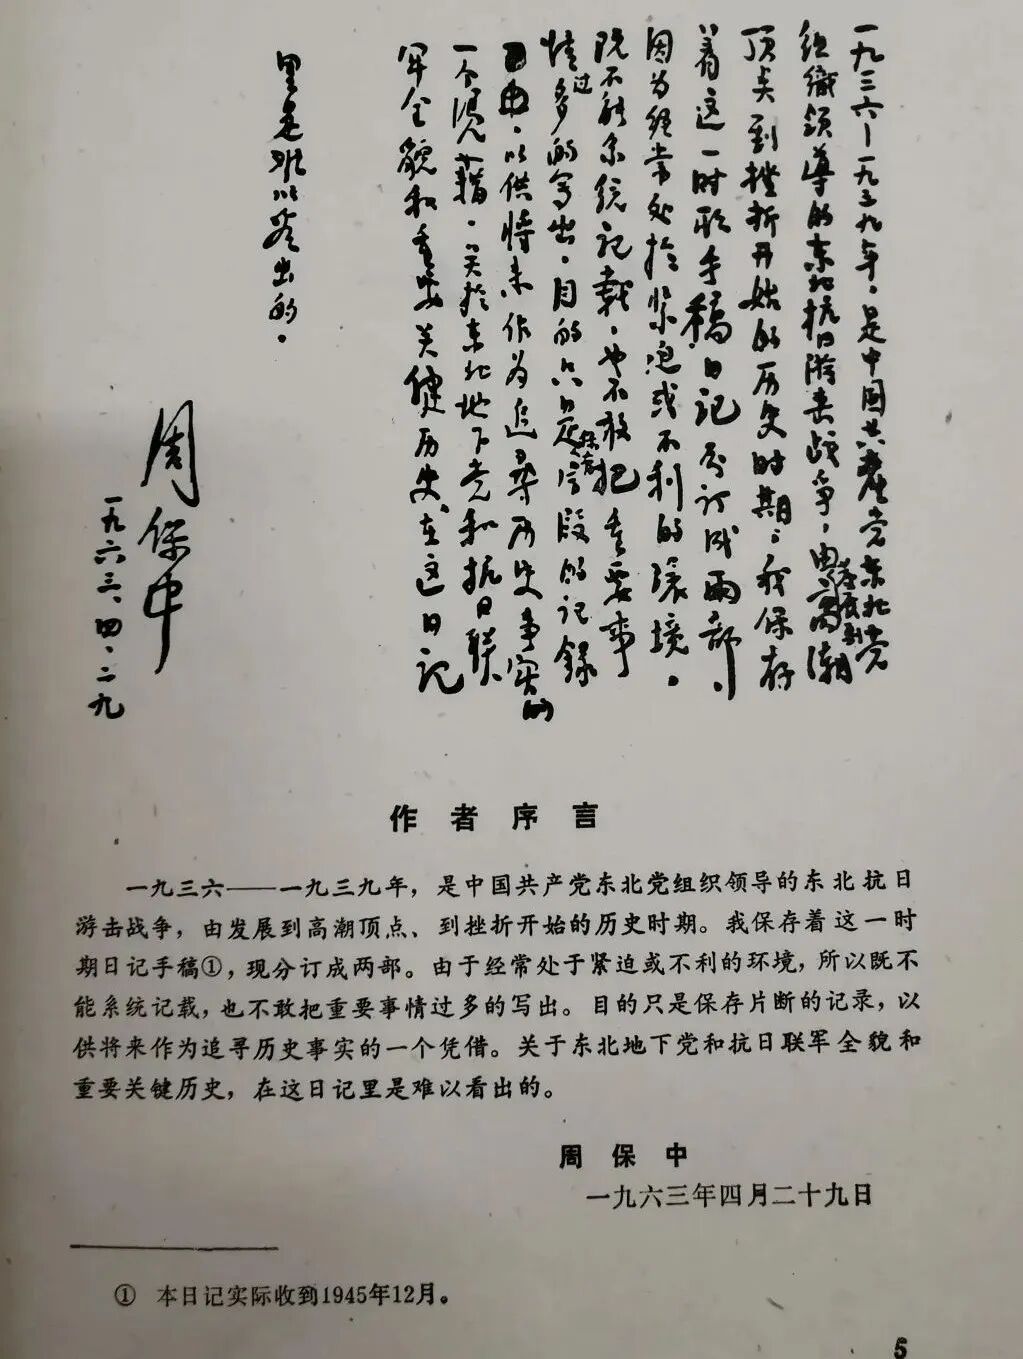 一九三六—一九三九年，是中国共产党东北党
组织领导的东北抗日游击战争，由发展到高潮
顶点到挫折开始的历史时期；我保存
着这一时期手稿日记，分订成两部，
因为经常处于紧迫或不利的环境，
既不能系统记载，也不敢把重要事
情过多的写出，目的只是保存片段的记录
以供将来作为追寻历史事实的
一个凭藉，关于东北地下党和抗日联
军全貌和重要关键历史在这日记
里是难以看出的。
周保中
一九六三、四、二九
作者序言
一九三六——一九三九年，是中国共产党东北党组织领导的东北抗日
游击战争，由发展到高潮顶点、到挫折开始的历史时期。我保存着这一时
期日记手稿①，现分订成两部。由于经常处于紧迫或不利的环境，所以既不
能系统记载，也不敢把重要事情过多的写出。目的只是保存片断的记录，以
供将来作为追寻历史事实的一个凭借。关于东北地下党和抗日联军全貌和
重要关键历史，在这日记里是难以看出的。
周保中
一九六三年四月二十九日
① 本日记实际收到1945年12月。
5